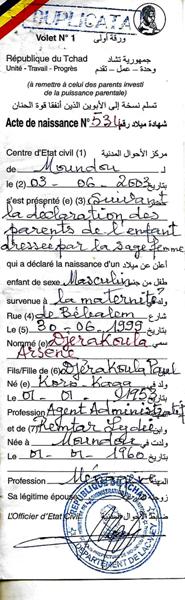 DUPLICATA
Volet N° 1 ورقة أولى
République du Tchad جمهورية تشاد
Unité - Travail - Progrès وحدة - عمل - تقدم
(à remettre à celui des parents investi
de la puissance parentale)
تسلم نسخة إلى الأبوين الذين أنفقا قوة الحنان
Acte de naissance N° 534 شهادة ميلاد رقم
Centre d'Etat civil (1) مركز الأحوال المدنية
de Moundou
le (2) 03 - 06 - 2003 بتاريخ
s'est présenté (e) (3) Suivant
la déclaration des
parents de l'enfant
dressée par la sage femme
qui a déclaré la naissance d'un أعلن عن ميلاد
enfant de sexe Masculin طفل من جنس
survenue à la maternité
Rue (4) de Béléalem شارع
Le (5) 30 - 06 - 1999 بتاريخ
Nommé (e) Djerakoula
Arsène
Fils/Fille de (6) Djérakoula Paul
Né (e) Koro Kaga ولد في
Le 01 - 01 - 1953 بتاريخ
Profession Agent Administratif
et de (7) Remtar Lydie
Née à Moundou ولدت في
Le 01 - 01 - 1960 بتاريخ
Profession
Sa légitime épouse
L'Officier d'Etat Civil
REPUBLIQUE DU TCHAD